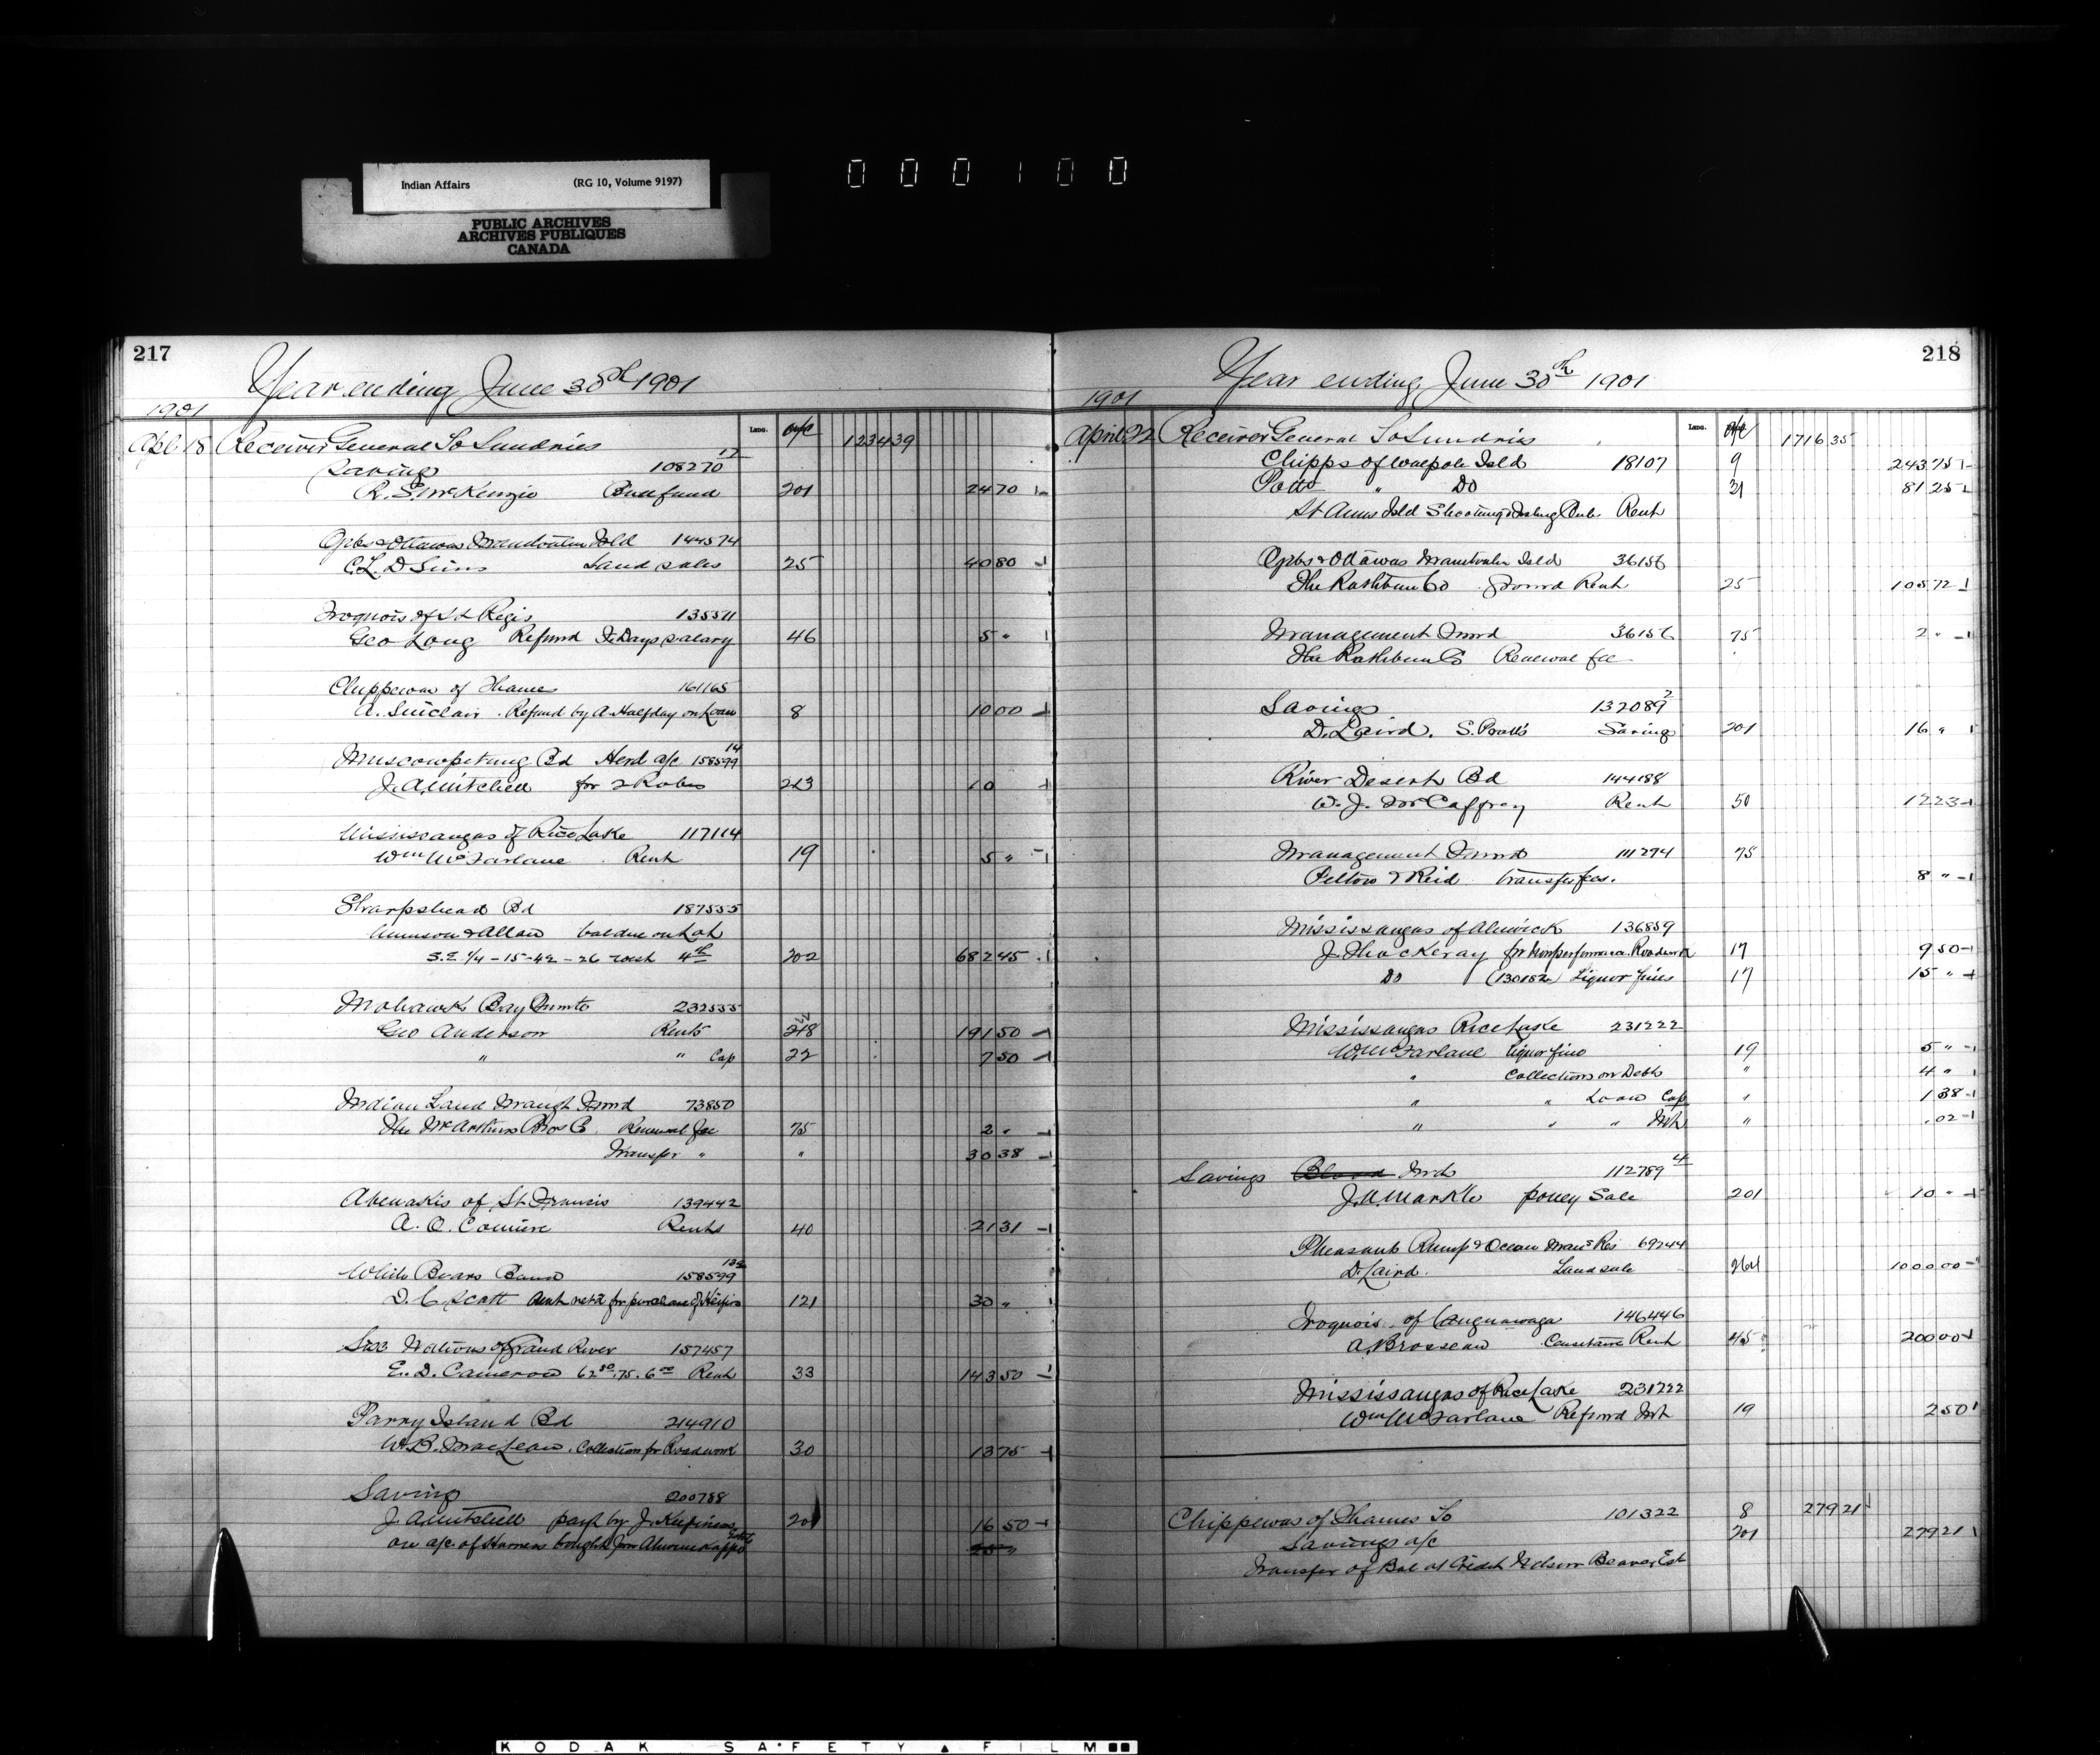 Indian Affairs (RG 10, Volume 9197)
PUBLIC ARCHIVES
ARCHIVES PUBLIQUES
CANADA
000100
217
Year ending June 30th 1901
1901
Apl 18 Receiver General To Sundries 1234 39
Savings 108270 12
R. S. McKenzie 201 24 70
Ojbs & Ottawas Manitoulin Isld 144574
C. L. D. Sims Land sales 25 40 80
Iroquois of St Regis 135511
Geo Long Refund Days salary 46 5 "
Chippewas of Thames 161165
A. Sinclair Refund by A. Halfday on Loan 8 10 00
Muscowpetung Bd Herd a/c 158599 14
J. A. Mitchell for 2 Robes 223 10
Mississaugas of Rice Lake 117114
Wm McFarlane Rent 19 5 "
Sharpshead Bd 187555
& Allan bal due on Lot
S.E. 1/4 - 15 - 42 - 26 west 4th 202 682 45
Mohawks Bay Quinte 232535
Geo Anderson Rents 218 191 50
" " Cap 22 7 50
Indian Land Mangt Fund 73850
The McArthur Bros Co. Renewal fee 75 2 "
Transfer " " 30 38
Abenakis of St Francis 139442
A. O. Comire Rents 40 21 31
White Bears Band 158599
D. C. Scott for purchase of Heifers 121 30 "
Six Nations of Grand River 157457
E. D. Cameron 62 50. 75. 6 00 Rent 33 143 50
Parry Island Bd 214910
W. B. MacLean. Collection for Roadwork 30 13 75
Saving 200788
J. A. Mitchell payt by J. 201 16 50
on a/c of Harness bought from
218
Year ending June 30th 1901
1901
April 22 Receiver General To Sundries 1716 35
Chipps of Walpole Isld 18107 9 243 75
Potts " Do 31 81 25
St Anns Isld Shooting & Fishing Club Rent
Ojbs & Ottawas Manitoulin Isld 36156
The Rathbun Co Ground Rent 25 105 72
Management Fund 36156 75 2 "
The Rathbun Co Renewal fee
Savings 132089 2
D. Laird. S. Pratt's Savings 201 16 "
River Desert Bd 144188
W. J. McCaffrey Rent 50 12 23
Management Fund 111294 75
Pelton & Reid transfer fees. 8 "
Mississaugas of Alnwick 136859
J. Thackeray for Nonperformance Roadwork 17 9 50
Do (130152) Liquor fines 17 15 "
Mississaugas Rice Lake 231222
W. McFarlane liquor fine 19 5 "
" Collections on Debts " 4 "
" " Loan Cap " 1 38
" " " Int " .02
Savings Blood Ind 112789 4
J. A. Markle poney Sale 201 10 "
Pheasants Rump & Ocean Mans Res 69244
D. Laird. Land sale 264 1000 00
Iroquois of Caughnawaga 146446
A. Brosseau Rent 45 200 00
Mississaugas of Rice Lake 231222
Wm McFarlane Refund Int 19 2 50
Chippewas of Thames To 101322 8 279 21
Savings a/c 201 279 21
Transfer of Bal at Credit Nelson Beaver Est
KODAK SAFETY FILM